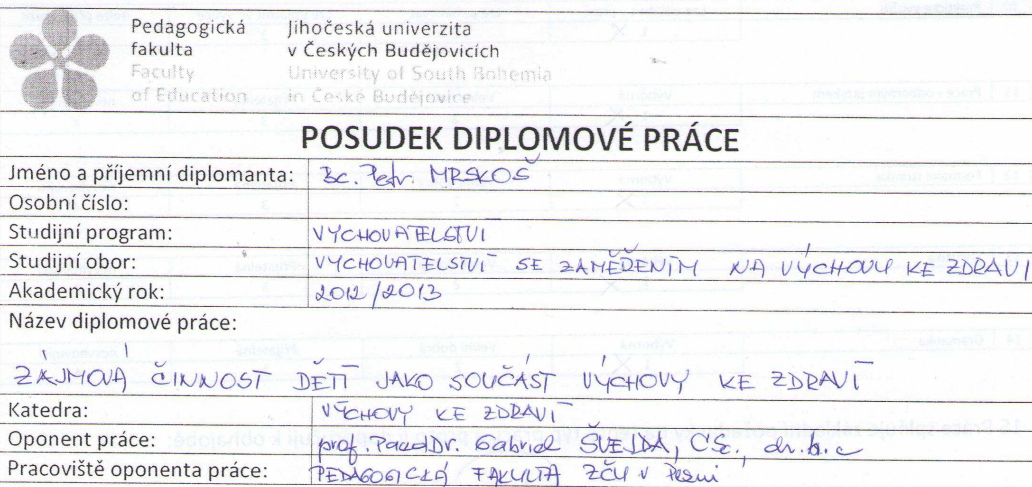 Pedagogická Jihočeská univerzita
fakulta v Českých Budějovicích
Faculty University of South Bohemia
of Education in České Budějovice
POSUDEK DIPLOMOVÉ PRÁCE
Jméno a příjemní diplomanta: Bc. Petr MRSKOŠ
Osobní číslo:
Studijní program: VYCHOVATELSTVÍ
Studijní obor: VYCHOVATELSTVÍ SE ZAMĚŘENÍM NA VÝCHOVU KE ZDRAVÍ
Akademický rok: 2012/2013
Název diplomové práce:
ZÁJMOVÁ ČINNOST DĚTÍ JAKO SOUČÁST VÝCHOVY KE ZDRAVÍ
Katedra: VÝCHOVY KE ZDRAVÍ
Oponent práce: prof. PaedDr. Gabriel ŠVEJDA, CSc., dr.h.c
Pracoviště oponenta práce: PEDAGOGICKÁ FAKULTA ZČU v Plzni